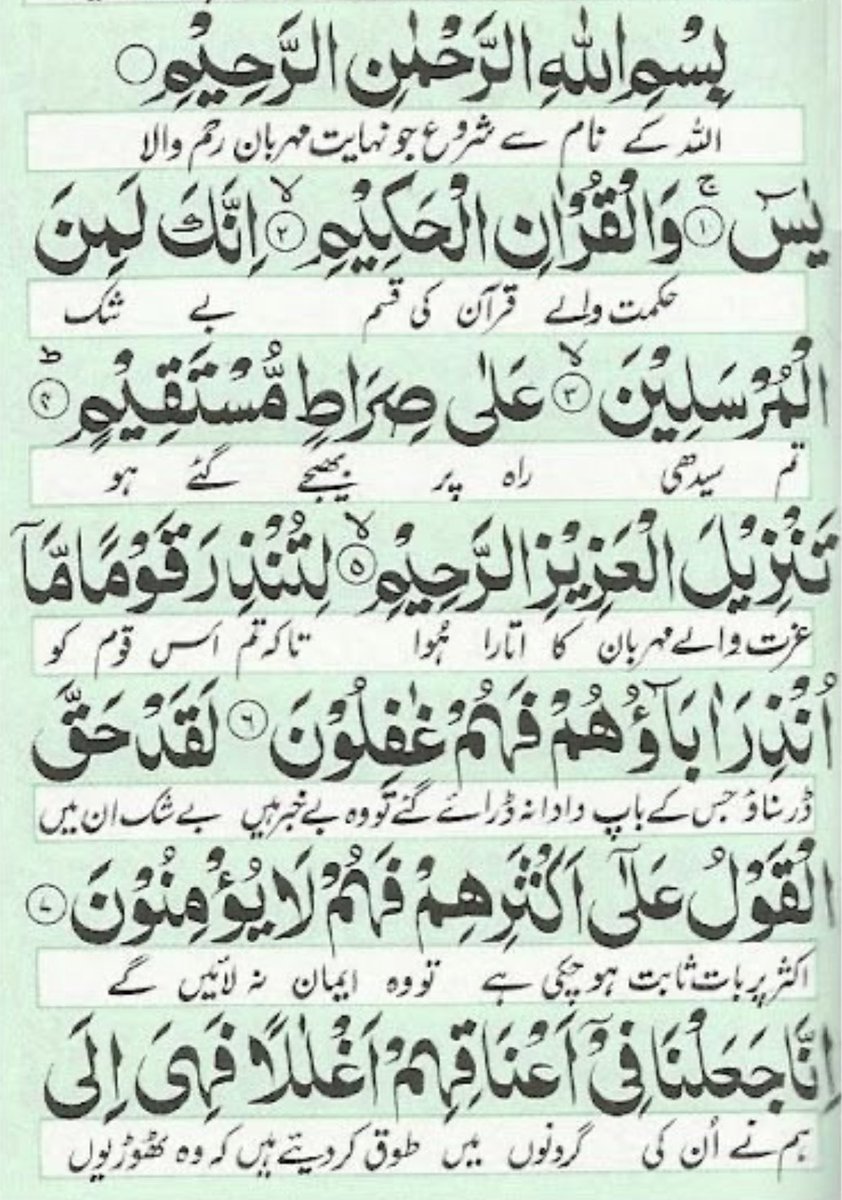 بِسْمِ اللّٰهِ الرَّحْمٰنِ الرَّحِيْمِ ○
اللہ کے نام سے شروع جو نہایت مہربان رحم والا
يٰسٓ ۚ﴿۱﴾ وَالْقُرْاٰنِ الْحَكِيْمِ ۙ﴿۲﴾ اِنَّكَ لَمِنَ
حکمت والے قرآن کی قسم بے شک
الْمُرْسَلِيْنَ ۙ﴿۳﴾ عَلٰى صِرَاطٍ مُّسْتَقِيْمٍ ؕ﴿۴﴾
تم سیدھی راہ پر بھیجے گئے ہو
تَنْزِيْلَ الْعَزِيْزِ الرَّحِيْمِ ۙ﴿۵﴾ لِتُنْذِرَ قَوْمًا مَّاۤ
عزت والے مہربان کا اتارا ہُوا تاکہ تم اس قوم کو
اُنْذِرَ اٰبَآؤُهُمْ فَهُمْ غٰفِلُوْنَ ﴿۶﴾ لَقَدْ حَقَّ
ڈر سناؤ جس کے باپ دادا نہ ڈرائے گئے تو وہ بے خبر ہیں بے شک ان میں
الْقَوْلُ عَلٰۤى اَكْثَرِهِمْ فَهُمْ لَا يُؤْمِنُوْنَ ﴿۷﴾
اکثر پر بات ثابت ہو چکی ہے تو وہ ایمان نہ لائیں گے
اِنَّا جَعَلْنَا فِيْۤ اَعْنَاقِهِمْ اَغْلٰلًا فَهِيَ اِلَى
ہم نے اُن کی گردنوں میں طوق کر دیئے ہیں کہ وہ ٹھوڑیوں